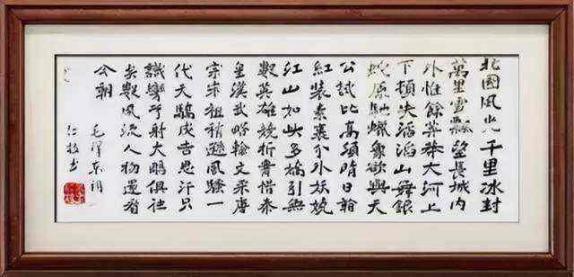 北國風光千里冰封
萬里雪飄望長城內
外惟餘莽莽大河上
下頓失滔滔山舞銀
蛇原馳蠟象欲與天
公試比高須晴日看
紅裝素裹分外妖嬈
江山如此多嬌引無
數英雄競折腰惜秦
皇漢武略輸文采唐
宗宋祖稍遜風騷一
代天驕成吉思汗只
識彎弓射大鵰俱往
矣數風流人物還看
今朝
毛澤東詞
書